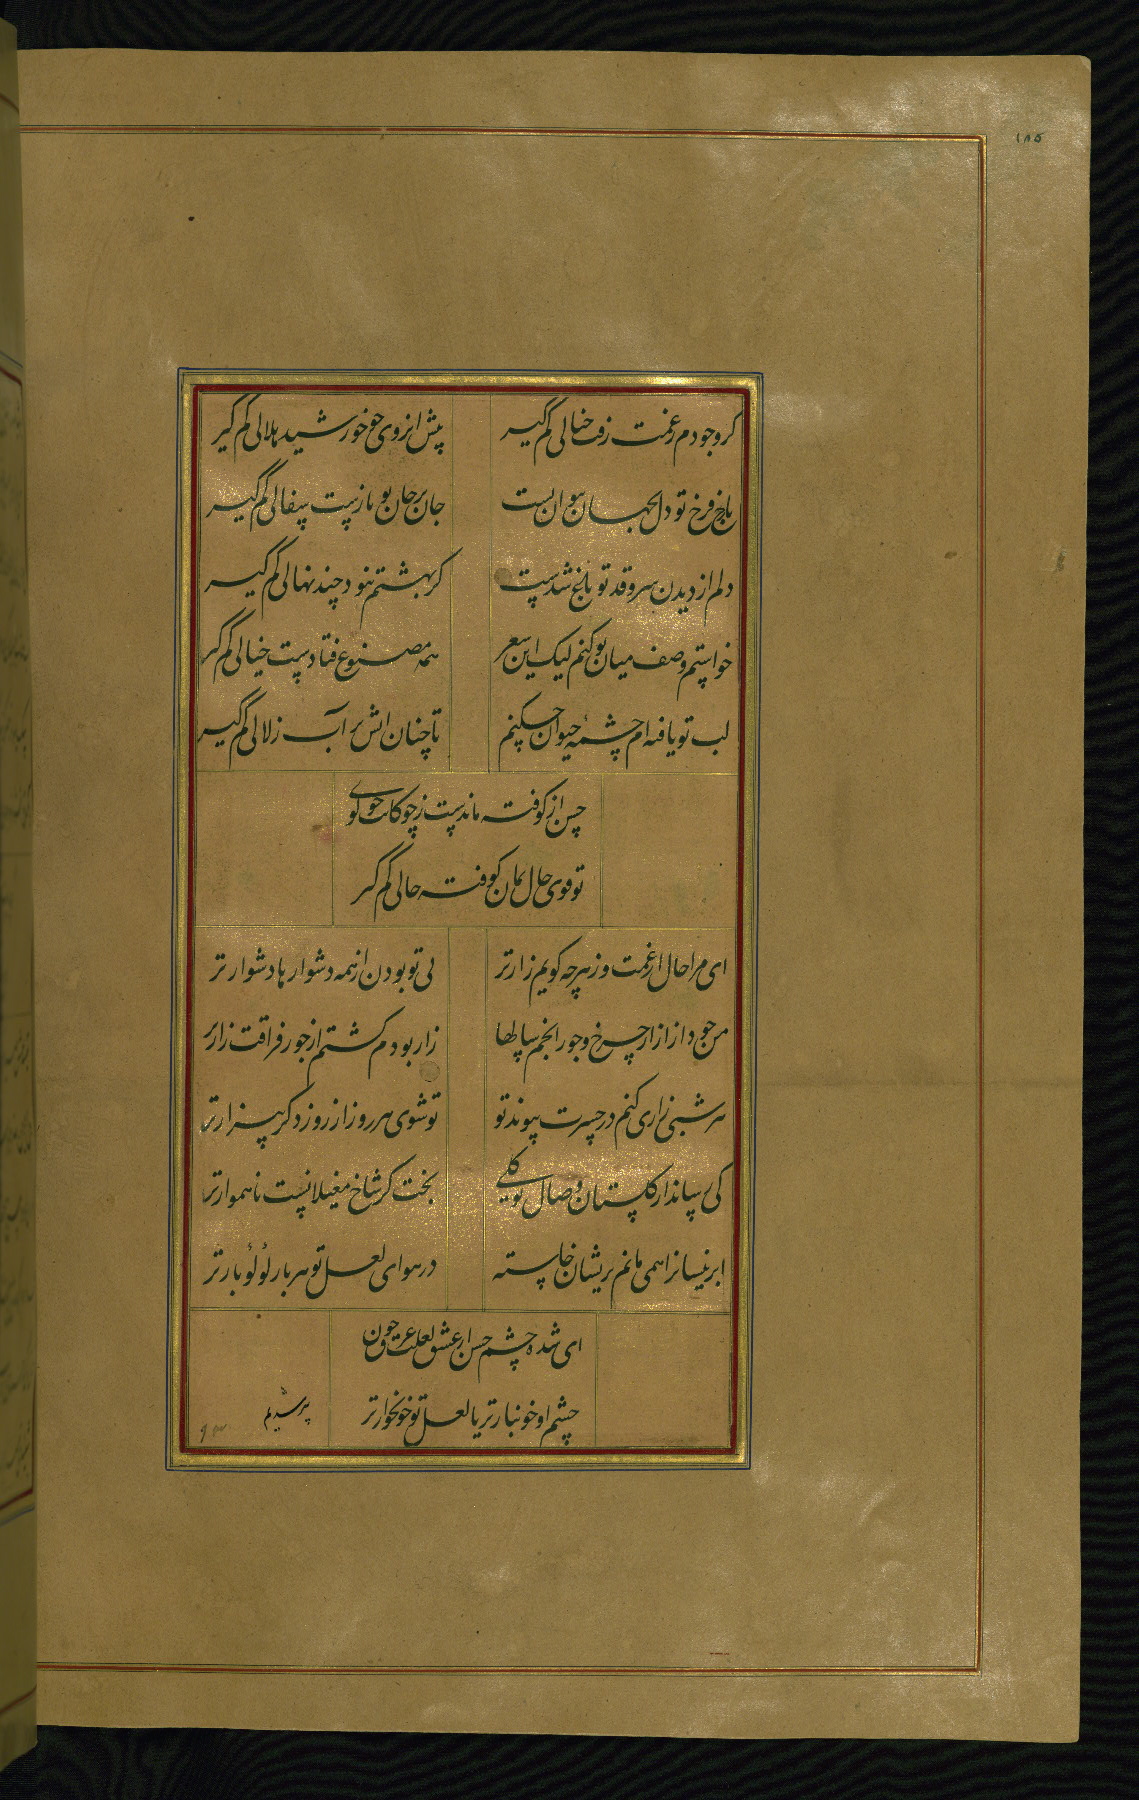 ١٨٥
کر وجودم ز غمت رفت خیالی کم گیر
پیش ابروی چو خورشید هلالی کم گیر
با رخ فرخ تو دل بجهان نتوان بست
جان بر جان تو بازیست سفالی کم گیر
دلم از دیدن سرو قد تو باغ شدست
کر بهشتم نبود چند نهالی کم گیر
خواستم وصف میان تو کنم لیک این شعر
همه مصنوع فتادست خیالی کم گیر
لب تو یافته ام چشمهٔ حیوان چکنم
تا چنان آتش تر آب زلالی کم گیر
حسن از کوفته ماندست ز چوکانت چو کوی
تو قوی حال بمان کوفته حالی کم گیر
ای مرا حال از غمت وز هرچه کویم زارتر
بی تو بودن از همه دشوارها دشوارتر
من خود از آزار چرخ و جور انجم سالها
زار بودم کشتم از جور فراقت زارتر
هر شبی زاری کنم در حسرت پیوند تو
تو شوی هر روز از روز دکر بیزارتر
کی رساند از کلستان وصال تو کلی
بخت کز شاخ مغیلانست ناهموارتر
ابر نیسانرا همی مانم پریشان خاسته
در هوای لعل تو هر بار لؤلؤ بارتر
ای شده چشم حسن از عشق لعلت غرق خون
چشم او خونبارتر یا لعل تو خونخوارتر